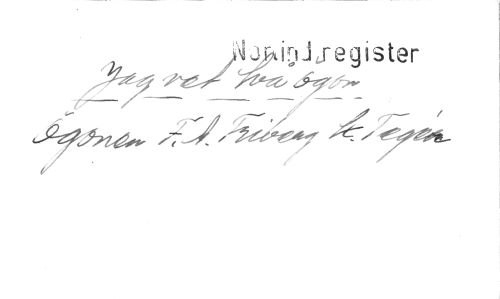 Nominalregister
Jag vet två ögon
Ögonen F. A. Friberg k. Tegnér